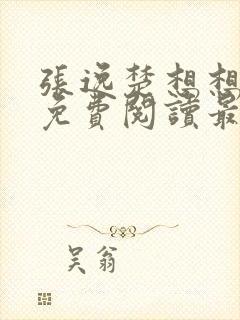 張逸楚想想
免費閱讀最
吴翁